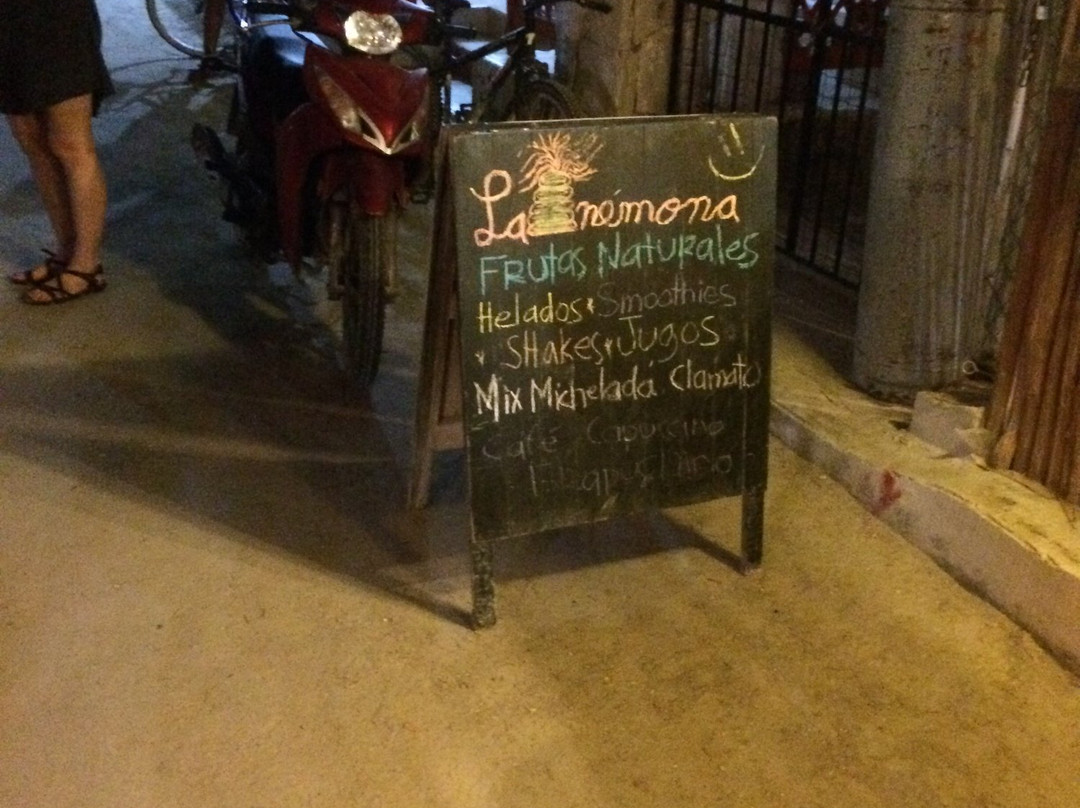 La Anémona
Frutas Naturales
Helados * Smoothies
* Shakes * Jugos
Mix Michelada Clamato
Café Capuccino